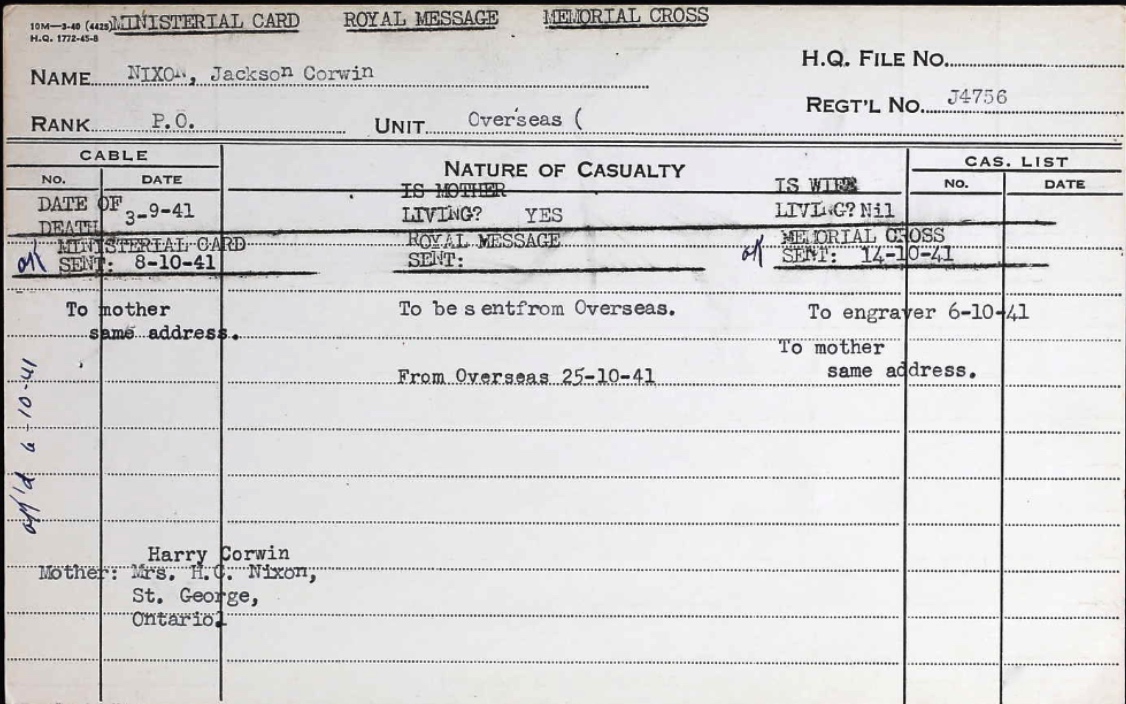 10M—3-40 (4425) MINISTERIAL CARD ROYAL MESSAGE MEMORIAL CROSS
H.Q. 1772-45-8
H.Q. FILE NO.
NAME NIXON, Jackson Corwin
REGT'L NO. J4756
RANK P.O. UNIT Overseas (
CABLE NATURE OF CASUALTY CAS. LIST
NO. DATE NO. DATE
IS MOTHER IS WIFE
DATE OF 3-9-41 LIVING? YES LIVING? Nil
DEATH
MINISTERIAL CARD ROYAL MESSAGE MEMORIAL CROSS
SENT: 8-10-41 SENT: SENT: 14-10-41
To mother To be s entfrom Overseas. To engraver 6-10-41
same address.
To mother
From Overseas 25-10-41 same address.
6-10-41
Harry Corwin
Mother: Mrs. H.C. Nixon,
St. George,
Ontario